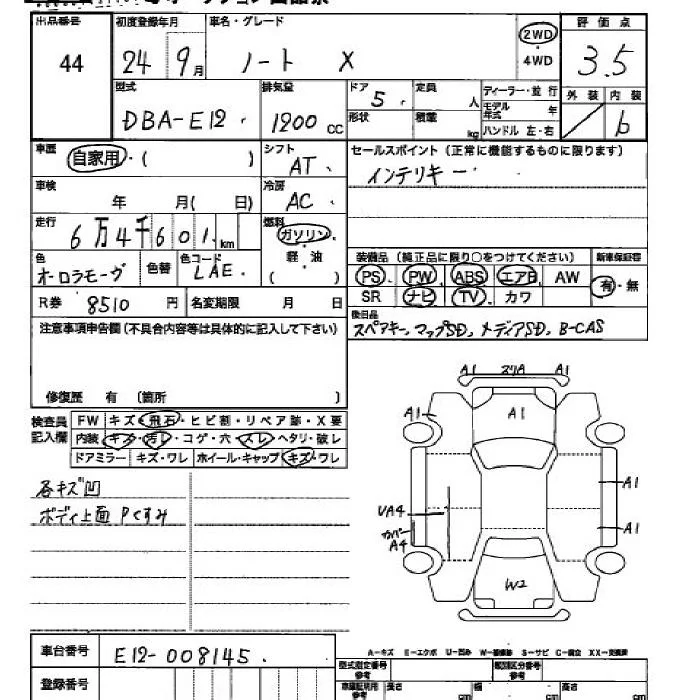 出品番号 初度登録年月 車名・グレード 2WD 評価点
44 24 9月 ノート X ・4WD 3.5
型式 排気量 ドア 定員 ディーラー・並行 外装 内装
DBA-E12 1200cc 5 人 モデル年式 年 b
形状 積載 kg ハンドル 左・右
車歴 自家用・( ) シフト AT セールスポイント(正常に機能するものに限ります)
インテリキー
車検 年 月( 日) 冷房 AC
走行 6万4千601km 燃料 ガソリン・軽・油 ( )
色 オーロラモーヴ 色替 色コード LAE
装備品(純正品に限り○をつけてください) 新車保証書
PS PW ABS エアB AW 有・無
SR ナビ TV カワ
R券 8510円 名変期限 月 日
後日品
スペアキー、マップSD、メディアSD、B-CAS
注意事項申告欄(不具合内容等は具体的に記入して下さい)
修復歴 有 (箇所 )
検査員記入欄 FW キズ・飛石・ヒビ割・リペア跡・X要
内装 キズ・汚レ・コゲ・穴・スレ・ヘタリ・破レ
ドアミラー キズ・ワレ ホイール・キャップ キズ・ワレ
各キズ凹
ボディ上面 Pくすみ
A1 スリA A1
A1 A1
A1
UA4
カバー A4
A1
W2
A-キズ E-エクボ U-凹み W-補修跡 S-サビ C-腐食 XX-交換済
車台番号 E12-008145
型式指定番号 参考 類別区分番号 参考
登録番号 車庫証明用 参考 長さ cm 幅 cm 高さ cm